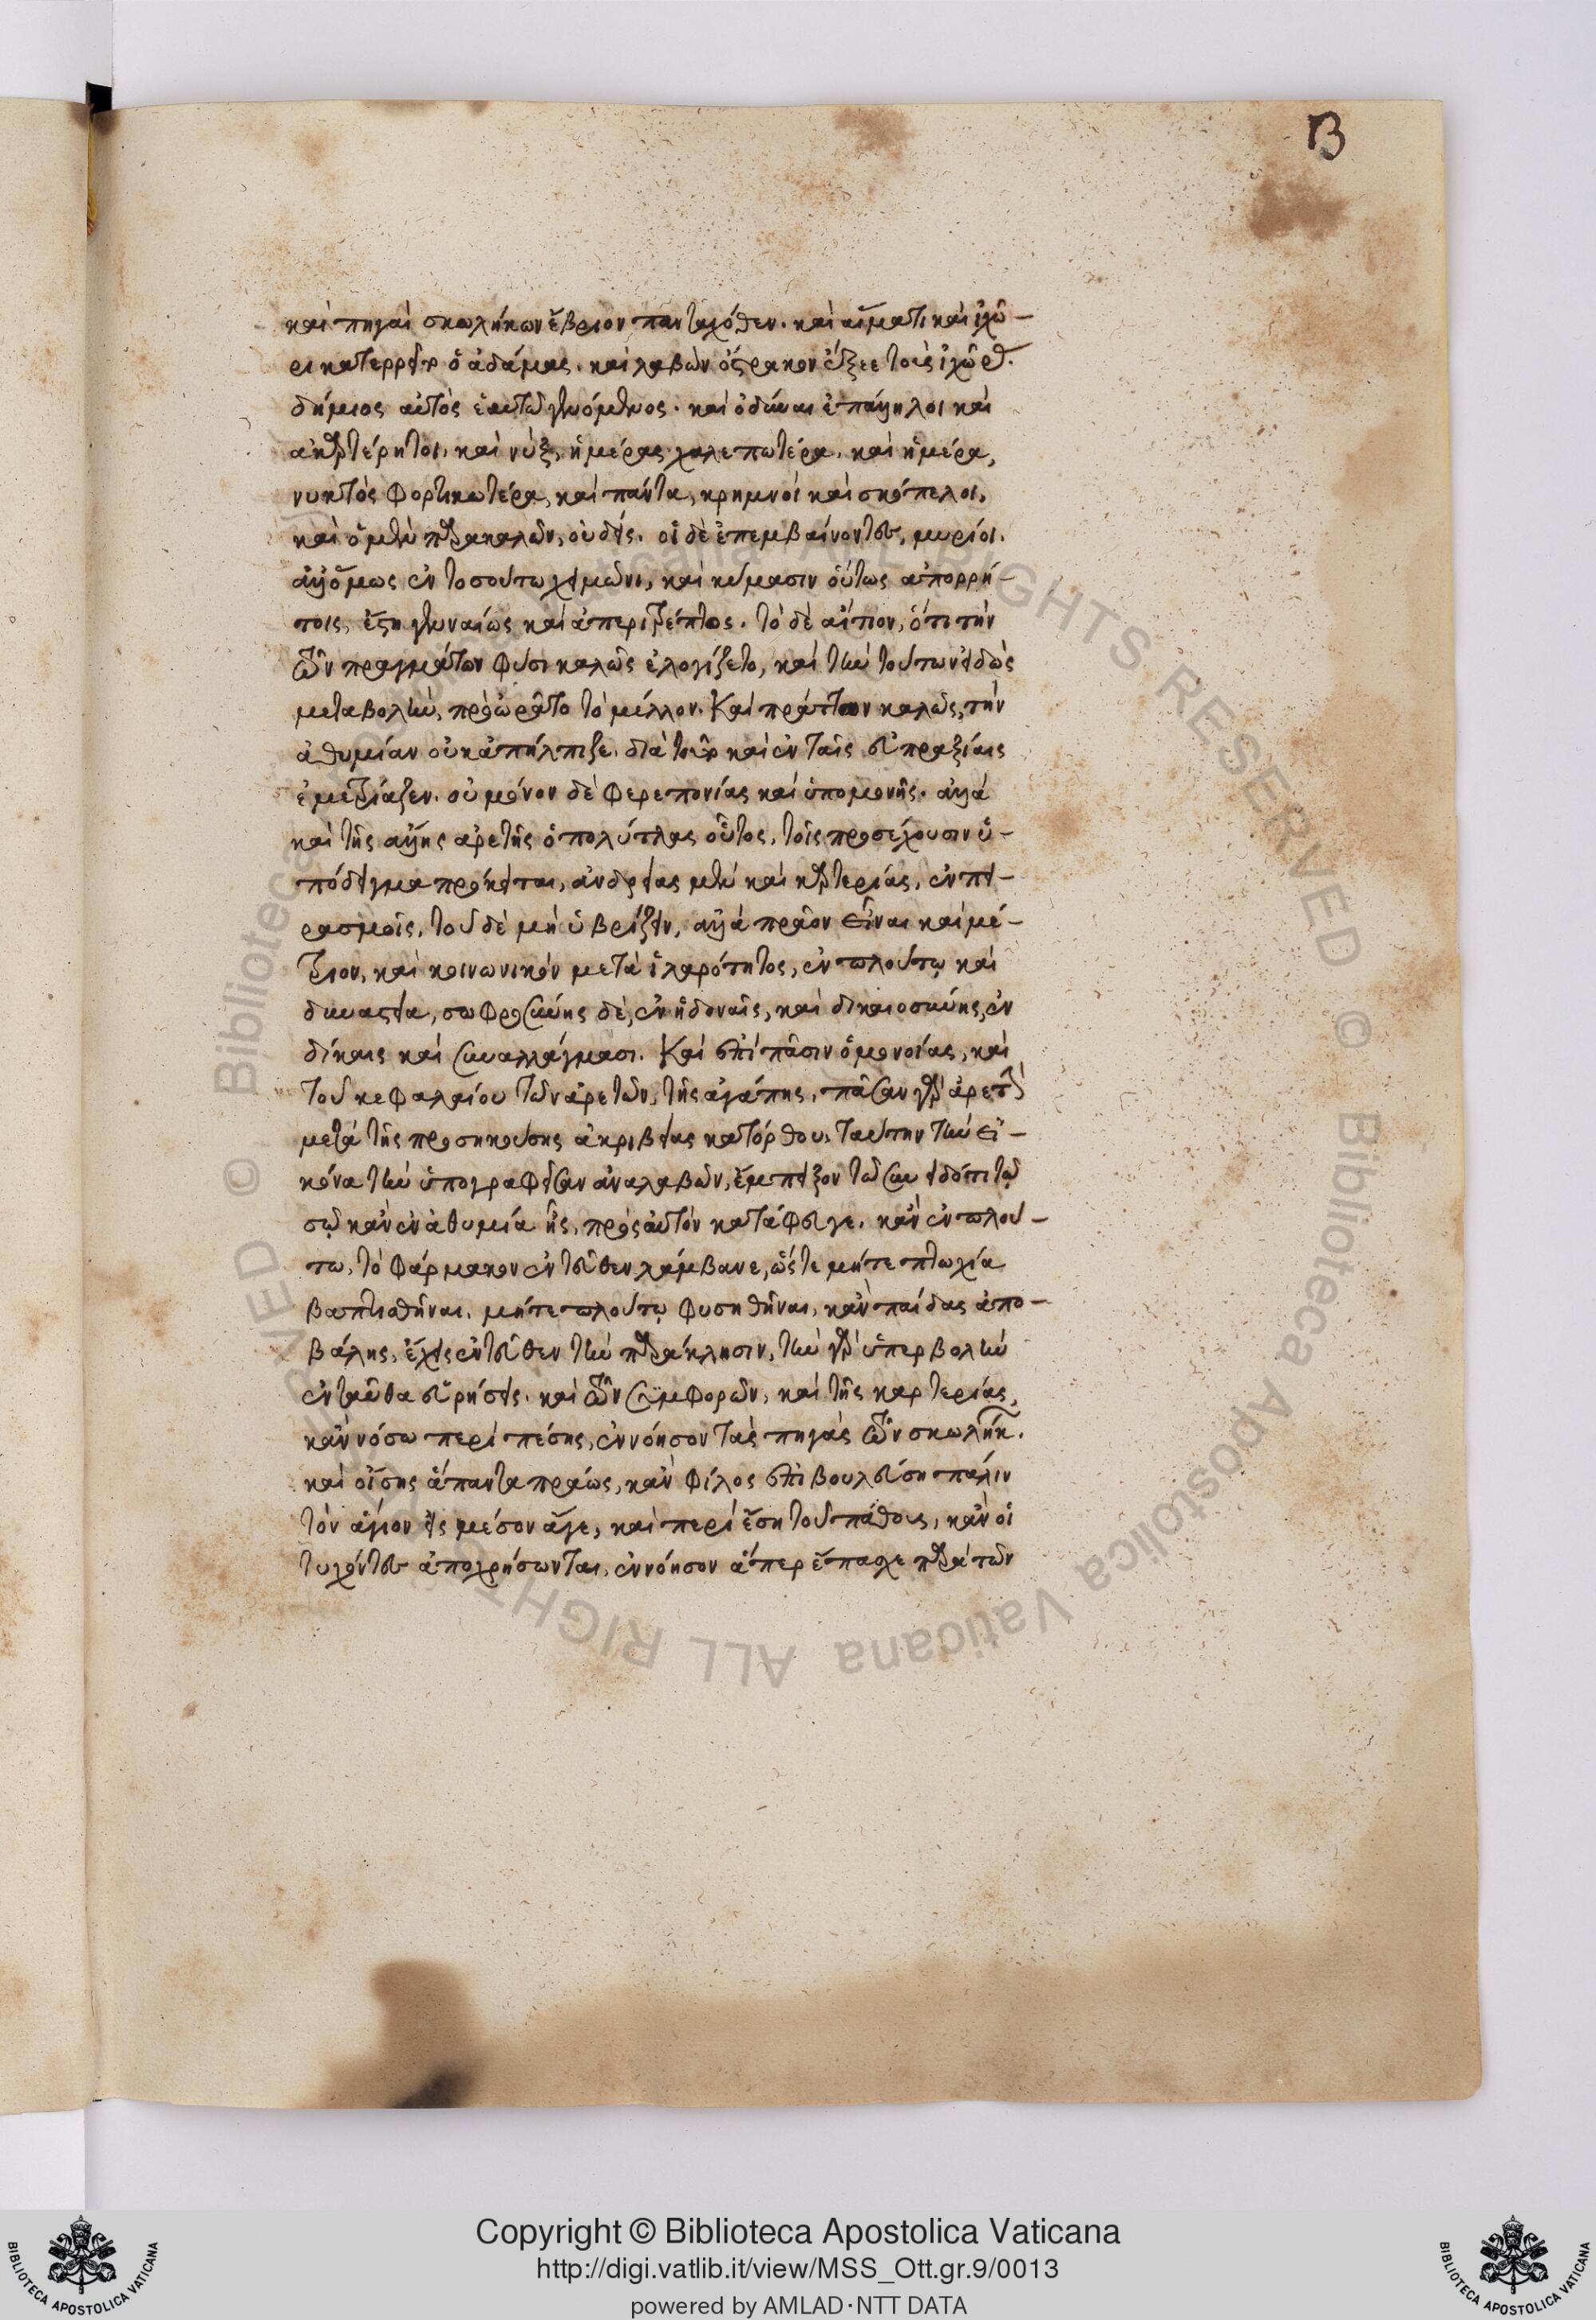 13
καὶ πηγαὶ σκωλήκων ἔβρυον πανταχόθεν. καὶ αἵματι καὶ ἰχῶ-
ρι κατερρεῖτο ὁ ἀδάμας. καὶ λαβὼν ὄστρακον ἔξεε τοὺς ἰχῶρας.
δήμιος αὐτὸς ἑαυτῶ γενόμενος. καὶ ὀδύναι ἐπάλληλοι καὶ
ἀκαρτέρητοι, καὶ νὺξ, ἡμέρας χαλεπωτέρα, καὶ ἡμέρα,
νυκτὸς φορτικωτέρα, καὶ πάντα, κρημνοὶ καὶ σκόπελοι,
καὶ ὁ μὲν παρακαλῶν, οὐδείς. οἱ δὲ ἐπεμβαίνοντες, μυρίοι.
ἀλλ' ὅμως ἐν τοσούτω χειμῶνι, καὶ κύμασιν οὕτως ἀπορρή-
τοις, ἔστη γενναίως καὶ ἀπεριτρέπτως. τὸ δὲ αἴτιον, ὅτι τὴν
τῶν πραγμάτων φύσιν καλῶς ἐλογίζετο, καὶ τὴν τούτων εἰδὼς
μεταβολὴν, προὠρᾶτο τὸ μέλλον. Καὶ πράττων καλῶς, τὴν
ἀθυμίαν οὐκ ἀπήλπιζε. διὰ τοῦτο καὶ ἐν ταῖς εὐπραξίαις
ἐμετρίαζεν. οὐ μόνον δὲ φερεπονίας καὶ ὑπομονῆς. ἀλλὰ
καὶ τῆς ἄλλης ἀρετῆς ὁ πολύτλας οὗτος, τοῖς προσέχουσιν ὑ-
πόδειγμα πρόκειται, ἀνδρείας μὲν καὶ καρτερίας, ἐν πει-
ρασμοῖς, τοῦ δὲ μὴ ὑβρίζειν, ἀλλὰ πρᾶον εἶναι καὶ μέ-
τριον, καὶ κοινωνικὸν μετὰ ἱλαρότητος, ἐν πλούτῳ καὶ
δυναστεία, σωφροσύνης δὲ, ἐν ἡδοναῖς, καὶ δικαιοσύνης, ἐν
δίκαις καὶ συναλλάγμασι. Καὶ ἐπὶ πᾶσιν ὁμονοίας, καὶ
τοῦ κεφαλαίου τῶν ἀρετῶν, τῆς ἀγάπης, πᾶσαν γὰρ ἀρετὴν
μετὰ τῆς προσηκούσης ἀκριβείας κατόρθου, ταύτην τὴν εἰ-
κόνα τὴν ὑπογραφεῖσαν ἀναλαβὼν, ἔμπηξον τῶ συνειδότι τῷ
σῷ κἂν ἐν ἀθυμία ῇς, πρὸς αὐτὸν κατάφευγε. κἂν ἐν πλού-
τω, τὸ φάρμακον ἐντεῦθεν λάμβανε, ὥστε μήτε πτωχία
βαπτισθῆναι, μήτε πλούτῳ φυσηθῆναι, κἂν παίδας ἀπο-
βάλης, ἔχεις ἐντεῦθεν τὴν παράκλησιν, τὴν γὰρ ὑπερβολὴν
ἐνταῦθα εὑρήσεις. καὶ τῶν συμφορῶν, καὶ τῆς καρτερίας,
κἂν νόσω περιπέσης, ἐννόησον τὰς πηγὰς τῶν σκωλήκ.
καὶ οἴσης ἅπαντα πράως, κἂν φίλος ἐπιβουλεύση πάλιν
τὸν ἅγιον εἰς μέσον ἄγε, καὶ περιέση τοῦ πάθους, κἂν οἱ
τυχόντες ἀποχρήσωνται, ἐννόησον ἅπερ ἔπασχε παρὰ τῶν
Copyright © Biblioteca Apostolica Vaticana
http://digi.vatlib.it/view/MSS_Ott.gr.9/0013
powered by AMLAD·NTT DATA